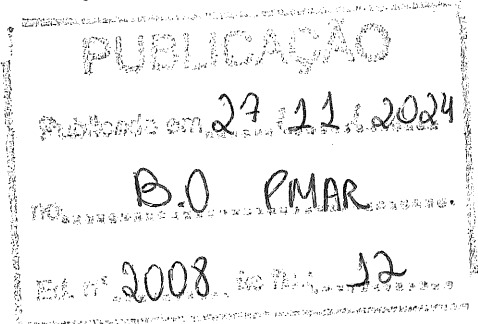 PUBLICAÇÃO
Publicado em 27 / 11 / 2024
no B.O PMAR
Ed. nº 2008, às fls. 12